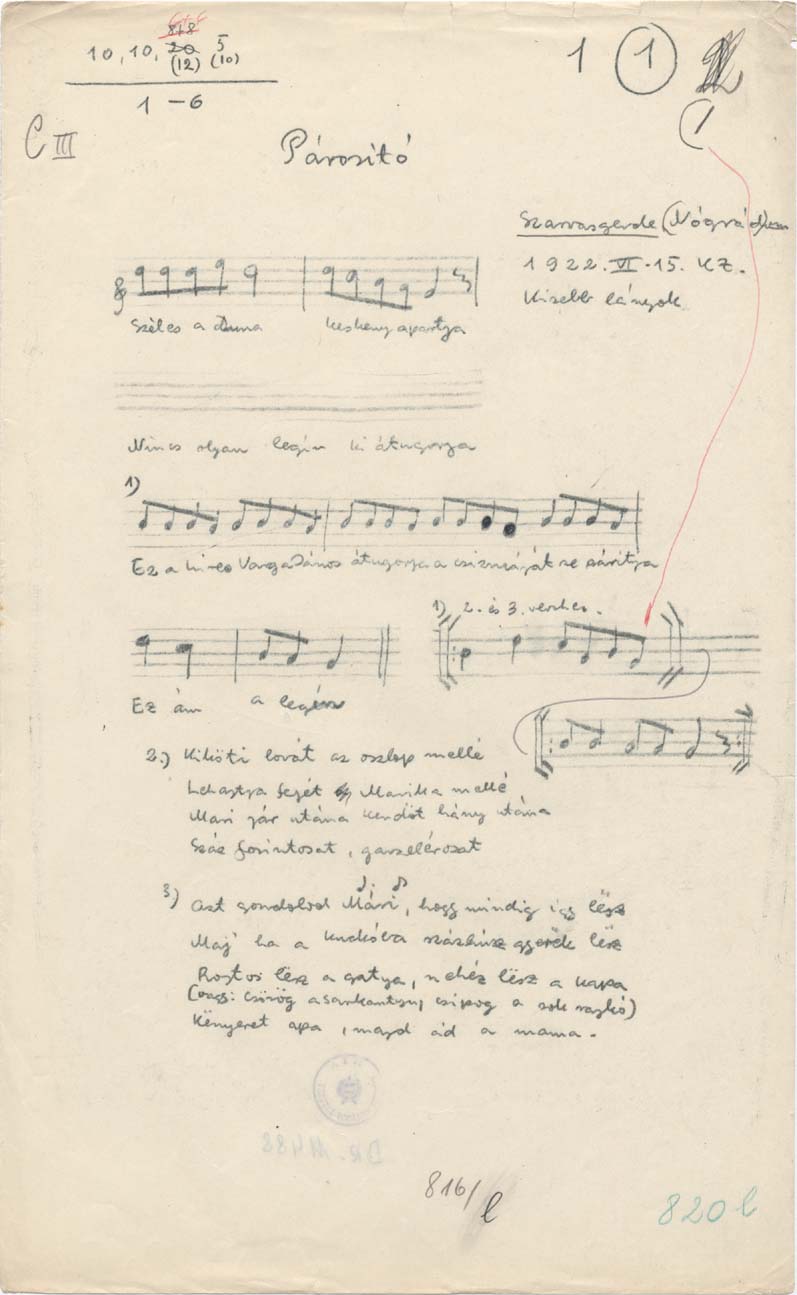 8+8
10, 10, 20 5
(12) (10)
1 – 6
1 1
C III
Párosító
Szarvasgerde (Nógrád)
1922. VI. 15. KZ.
Kisebb lányok
Széles a Duna keskeny a partja
Nincs olyan legín ki átugorja
1)
Ez a híres Varga János átugorja a csizmáját se sárítja
1) 2. és 3. vershez.
Ez ám a legény
2.) Kiköti lovát az oszlop mellé
Lehajtya fejét Mariska mellé
Mari jár utána kendőt hány utána
Száz forintosat, garzelérosat
3) Azt gondolod Mári, hogy mindig így lësz
Maj' ha a kuckóba százhúsz gyerëk lësz
Rojtos lësz a gatya, nehéz lësz a kapa
(vagy: csörög a sarkantyu, csipog a sok rajkó)
Kënyeret apa, majd ád a mama.
DR. 11488
816/l
820 l